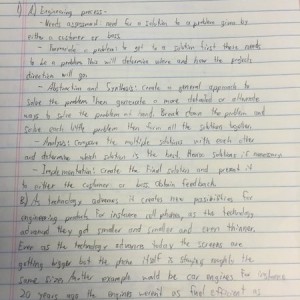 1) A) Engineering process -
- Needs assessment: need for a solution to a problem given by
either a customer or boss
- Formulate a problem: to get to a solution first there needs
to be a problem this will determine where and how the projects
direction will go.
- Abstraction and Synthesis: create a general approach to
solve the problem. Then generate a more detailed or alternate
ways to solve the problem at hand. Break down the problem and
solve each little problem then form all the solutions together.
- Analysis: compare the multiple solutions with each other
and determine which solution is the best. Revise solutions if necessary.
- Implementation: create the final solution and present it
to either the customer or boss. Obtain feedback.
B) As technology advances it creates new possibilities for
engineering products. For instance cell phones, as the technology
advanced they get smaller and smaller and even thinner.
Even as the technology advances today the screens are
getting bigger but the phone itself is staying roughly the
same size. Another example would be car engines for instance
20 years ago the engines weren't as fuel efficient as